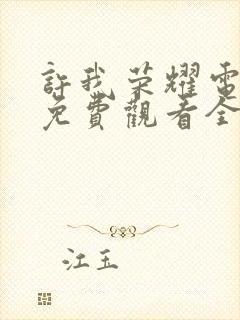 許我荣耀電
免費觀看全
江玉